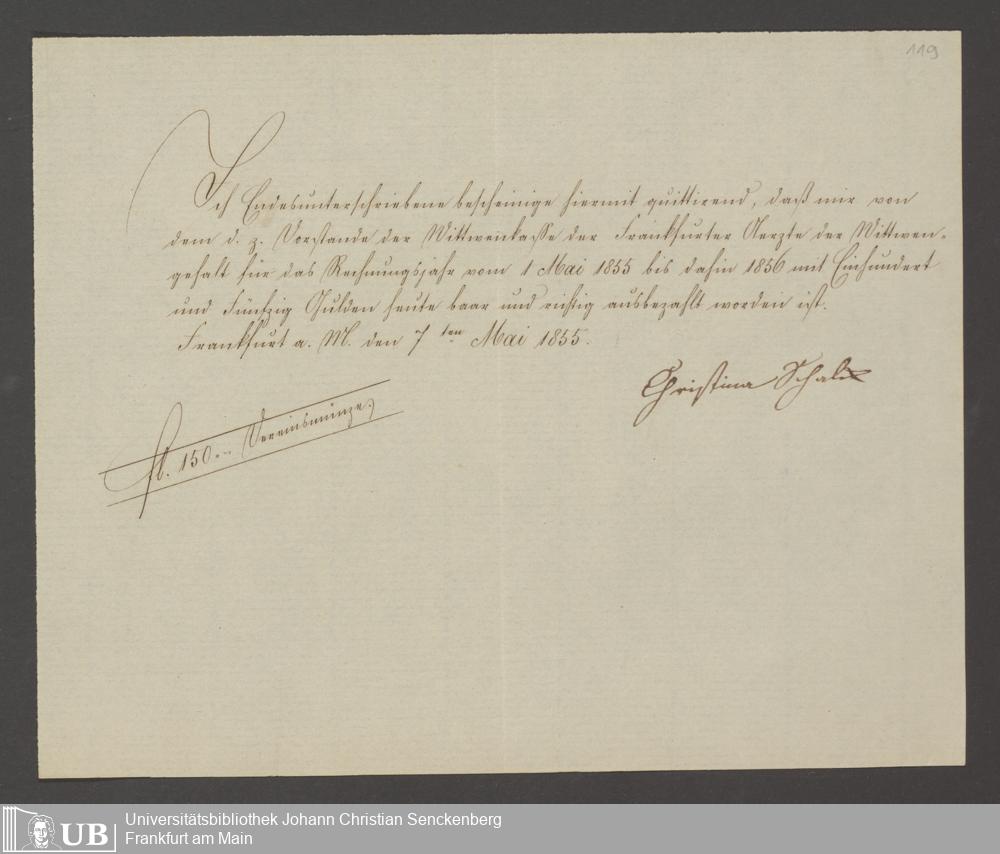 119
Ich Endesunterschriebene bescheinige hiermit quittirend, daß mir von
dem d. z. Vorstande der Wittwenkasse der Frankfurter Aerzte der Wittwen-
gehalt für das Rechnungsjahr vom 1 Mai 1855 bis dahin 1856 mit Einhundert
und Fünfzig Gulden heute baar und richtig ausbezahlt worden ist.
Frankfurt a. M. den 7ten Mai 1855.
Christina Schalk
fl. 150.– Vereinsmünze.
UB
Universitätsbibliothek Johann Christian Senckenberg
Frankfurt am Main